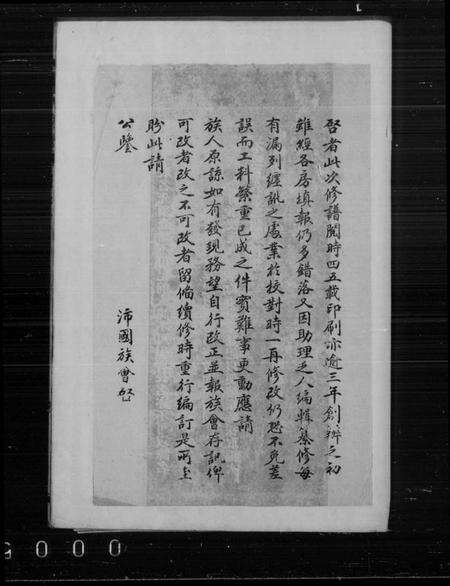 啓者此次修譜閱時四五載印刷亦逾三年創辦之初
雖經各房填報仍多錯落又因助理乏人編輯纂修每
有漏列纏訛之處業於校對時一再修改仍恐不免差
誤而工料繁重已成之件實難事更動應請
族人原諒如有發現務望自行改正並報族會存記俾
可改者改之不可改者留俻續修時重行編訂是所至
盼此請
公鑒
沛國族會啓
0 0 0